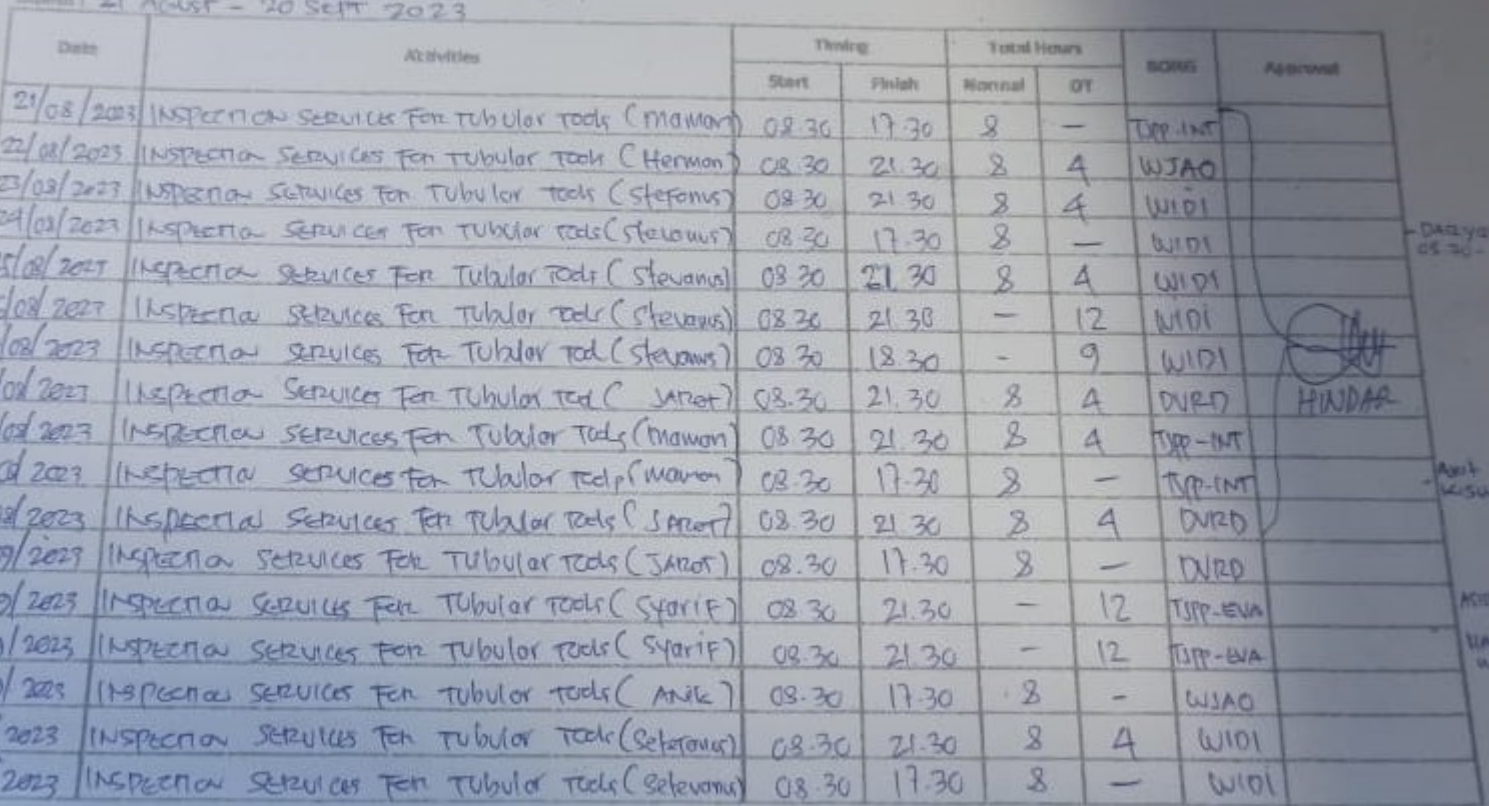 21 AGUST - 20 SEPT 2023
Date Activities Timing Total Hours Approval
Start Finish Normal OT
21/08/2023 INSPECTION SERVICES FOR TUBULAR TOOLS (Maman) 08.30 17.30 8 — TSPP-INT
22/08/2023 INSPECTION SERVICES FOR TUBULAR TOOLS (Herman) 08.30 21.30 8 4 WJAO
23/08/2023 INSPECTION SERVICES FOR TUBULAR TOOLS (Stefanus) 08.30 21.30 8 4 WIDI
24/08/2023 INSPECTION SERVICES FOR TUBULAR TOOLS (Stevanus) 08.30 17.30 8 — WIDI
5/08/2023 INSPECTION SERVICES FOR TUBULAR TOOLS (Stevanus) 08.30 21.30 8 4 WIDI
/08/2023 INSPECTION SERVICES FOR TUBULAR TOOLS (Stevanus) 08.30 21.30 — 12 WIDI
/08/2023 INSPECTION SERVICES FOR TUBULAR TOOL (Stevanus) 08.30 18.30 - 9 WIDI
/08/2023 INSPECTION SERVICES FOR TUBULAR TOOL (JAROT) 08.30 21.30 8 4 DVRD HINDAR
/08/2023 INSPECTION SERVICES FOR TUBULAR TOOLS (Maman) 08.30 21.30 8 4 TSPP-INT
2023 INSPECTION SERVICES FOR TUBULAR TOOLS (Maman) 08.30 17.30 8 — TSPP-INT
/2023 INSPECTION SERVICES FOR TUBULAR TOOLS (JAROT) 08.30 21.30 8 4 DVRD
/2023 INSPECTION SERVICES FOR TUBULAR TOOLS (JAROT) 08.30 17.30 8 — DVRD
/2023 INSPECTION SERVICES FOR TUBULAR TOOLS (SYARIF) 08.30 21.30 — 12 TSPP-EVA
/2023 INSPECTION SERVICES FOR TUBULAR TOOLS (SYARIF) 08.30 21.30 — 12 TSPP-EVA
/2023 INSPECTION SERVICES FOR TUBULAR TOOLS (ANIK) 08.30 17.30 8 - WJAO
2023 INSPECTION SERVICES FOR TUBULAR TOOLS (Setefanus) 08.30 21.30 8 4 WIDI
2023 INSPECTION SERVICES FOR TUBULAR TOOLS (Setevanus) 08.30 17.30 8 — WIDI